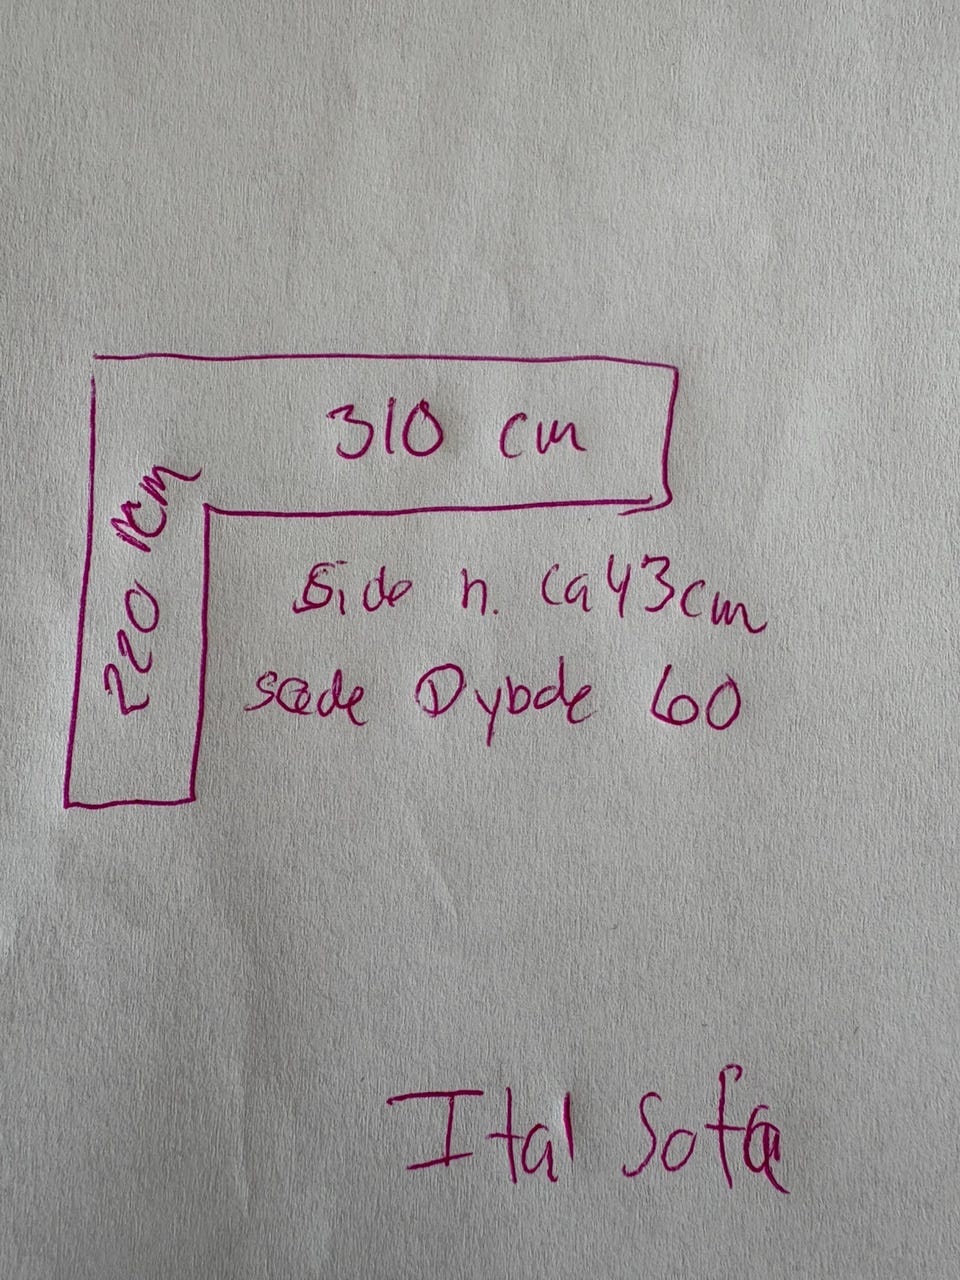 310 cm
220 cm
Side h. ca 43cm
sæde Dybde 60
Ital Sofa